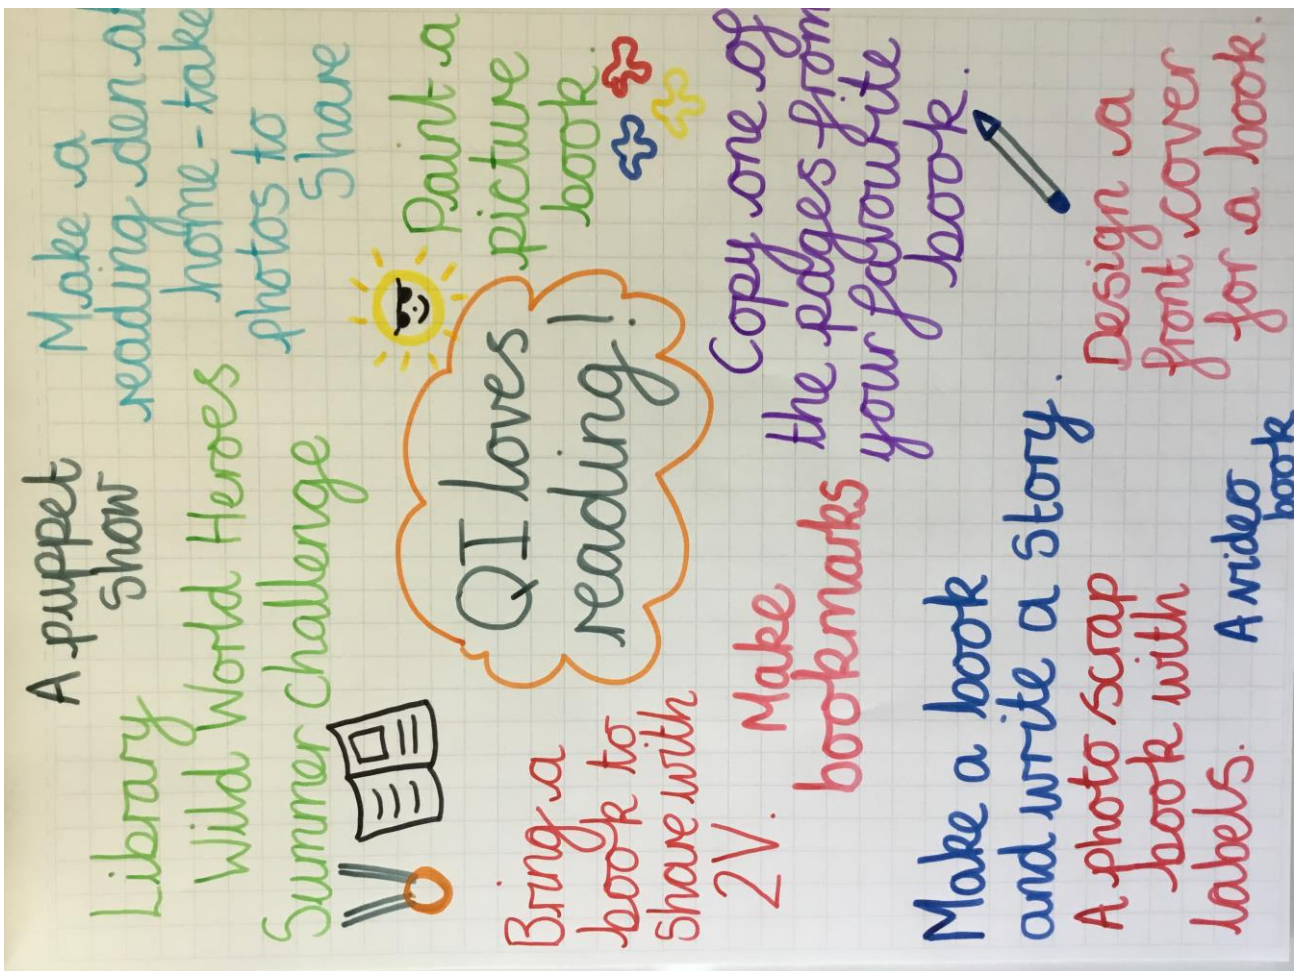 Library
Wild World Heroes
Summer Challenge
A puppet
show
Make a
reading den at
home - take
photos to
share
QI loves
reading!
Paint a
picture
book.
Bring a
book to
share with
2V.
Make
bookmarks
Copy one of
the pages from
your favourite
book.
Make a book
and write a story.
A photo scrap
book with
labels.
A video
book
Design a
front cover
for a book.